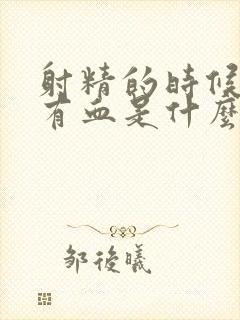 射精的時候
有血是什麼
鄒後曦